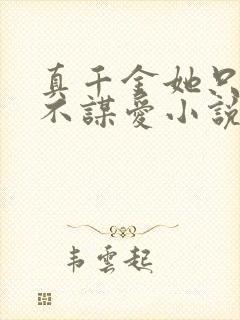 真千金她只
不謀愛小說
韋雲起